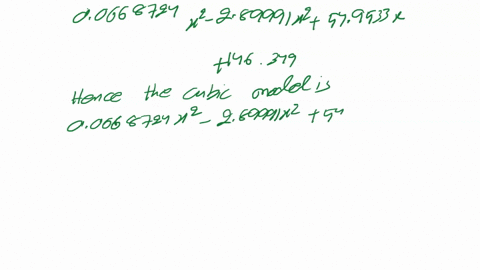 0.0668724 x² - 2.89991x² + 54.9533x
+146.349
Hence the cubic model is
0.0668724x² - 2.89991x² + 54